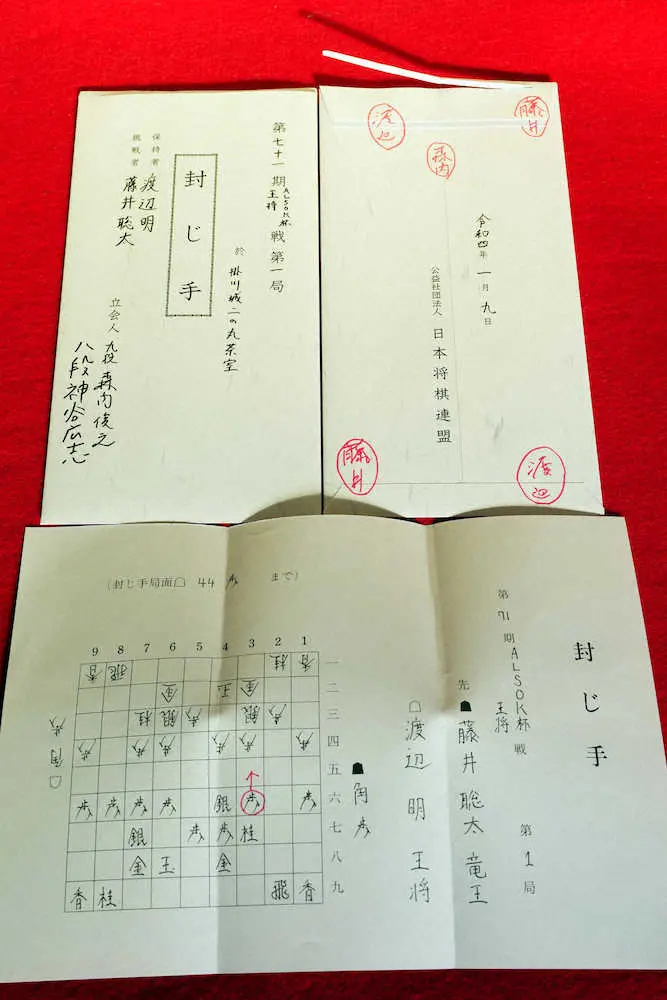 第七十一期ALSOK杯王将戦第一局
於 掛川城二の丸茶室
封じ手
保持者 渡辺明
挑戦者 藤井聡太
立会人 九段 森内俊之
八段 神谷広志
藤井
森内
渡辺
令和四年一月九日
公益社団法人 日本将棋連盟
渡辺
藤井
封じ手
第71期ALSOK杯王将戦 第1局
先 ☗藤井聡太 竜王
☖渡辺 明 王将
(封じ手局面☖ 44 歩 まで)
☗角歩
9 8 7 6 5 4 3 2 1
香 飛 桂 香 一
金 玉 金 二
桂 銀 歩 銀 歩 三
歩 歩 歩 歩 歩 歩 四
五
歩 歩 歩 歩 銀 歩 歩 六
銀 歩 歩 桂 七
金 玉 金 八
香 桂 飛 香 九
☖角歩